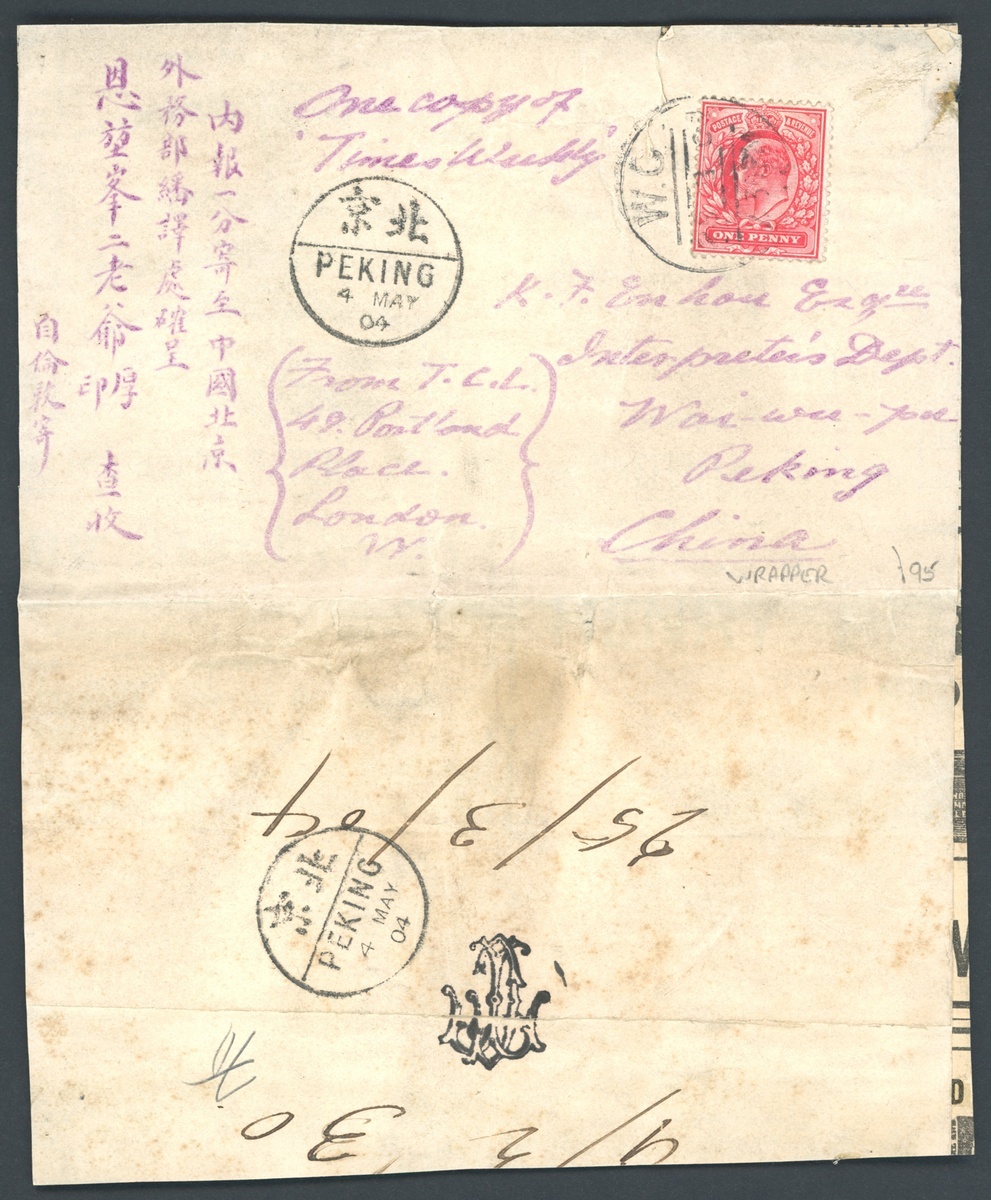 One copy of
'Times Weekly'
W.C
POSTAGE & REVENUE
ONE PENNY
K. F. Enhou Esqre
Interpreter's Dept.
Wai-wu-pu
Peking
China
From T. C. L.
49. Portland
Place.
London.
W.
北京
PEKING
4 MAY
04
內報一分寄至中國北京
外務部繙譯處確呈
恩堃峯二老爺 厚印 查收
自倫敦寄
WRAPPER
95
25/3/04
北京
PEKING
4 MAY
04
30